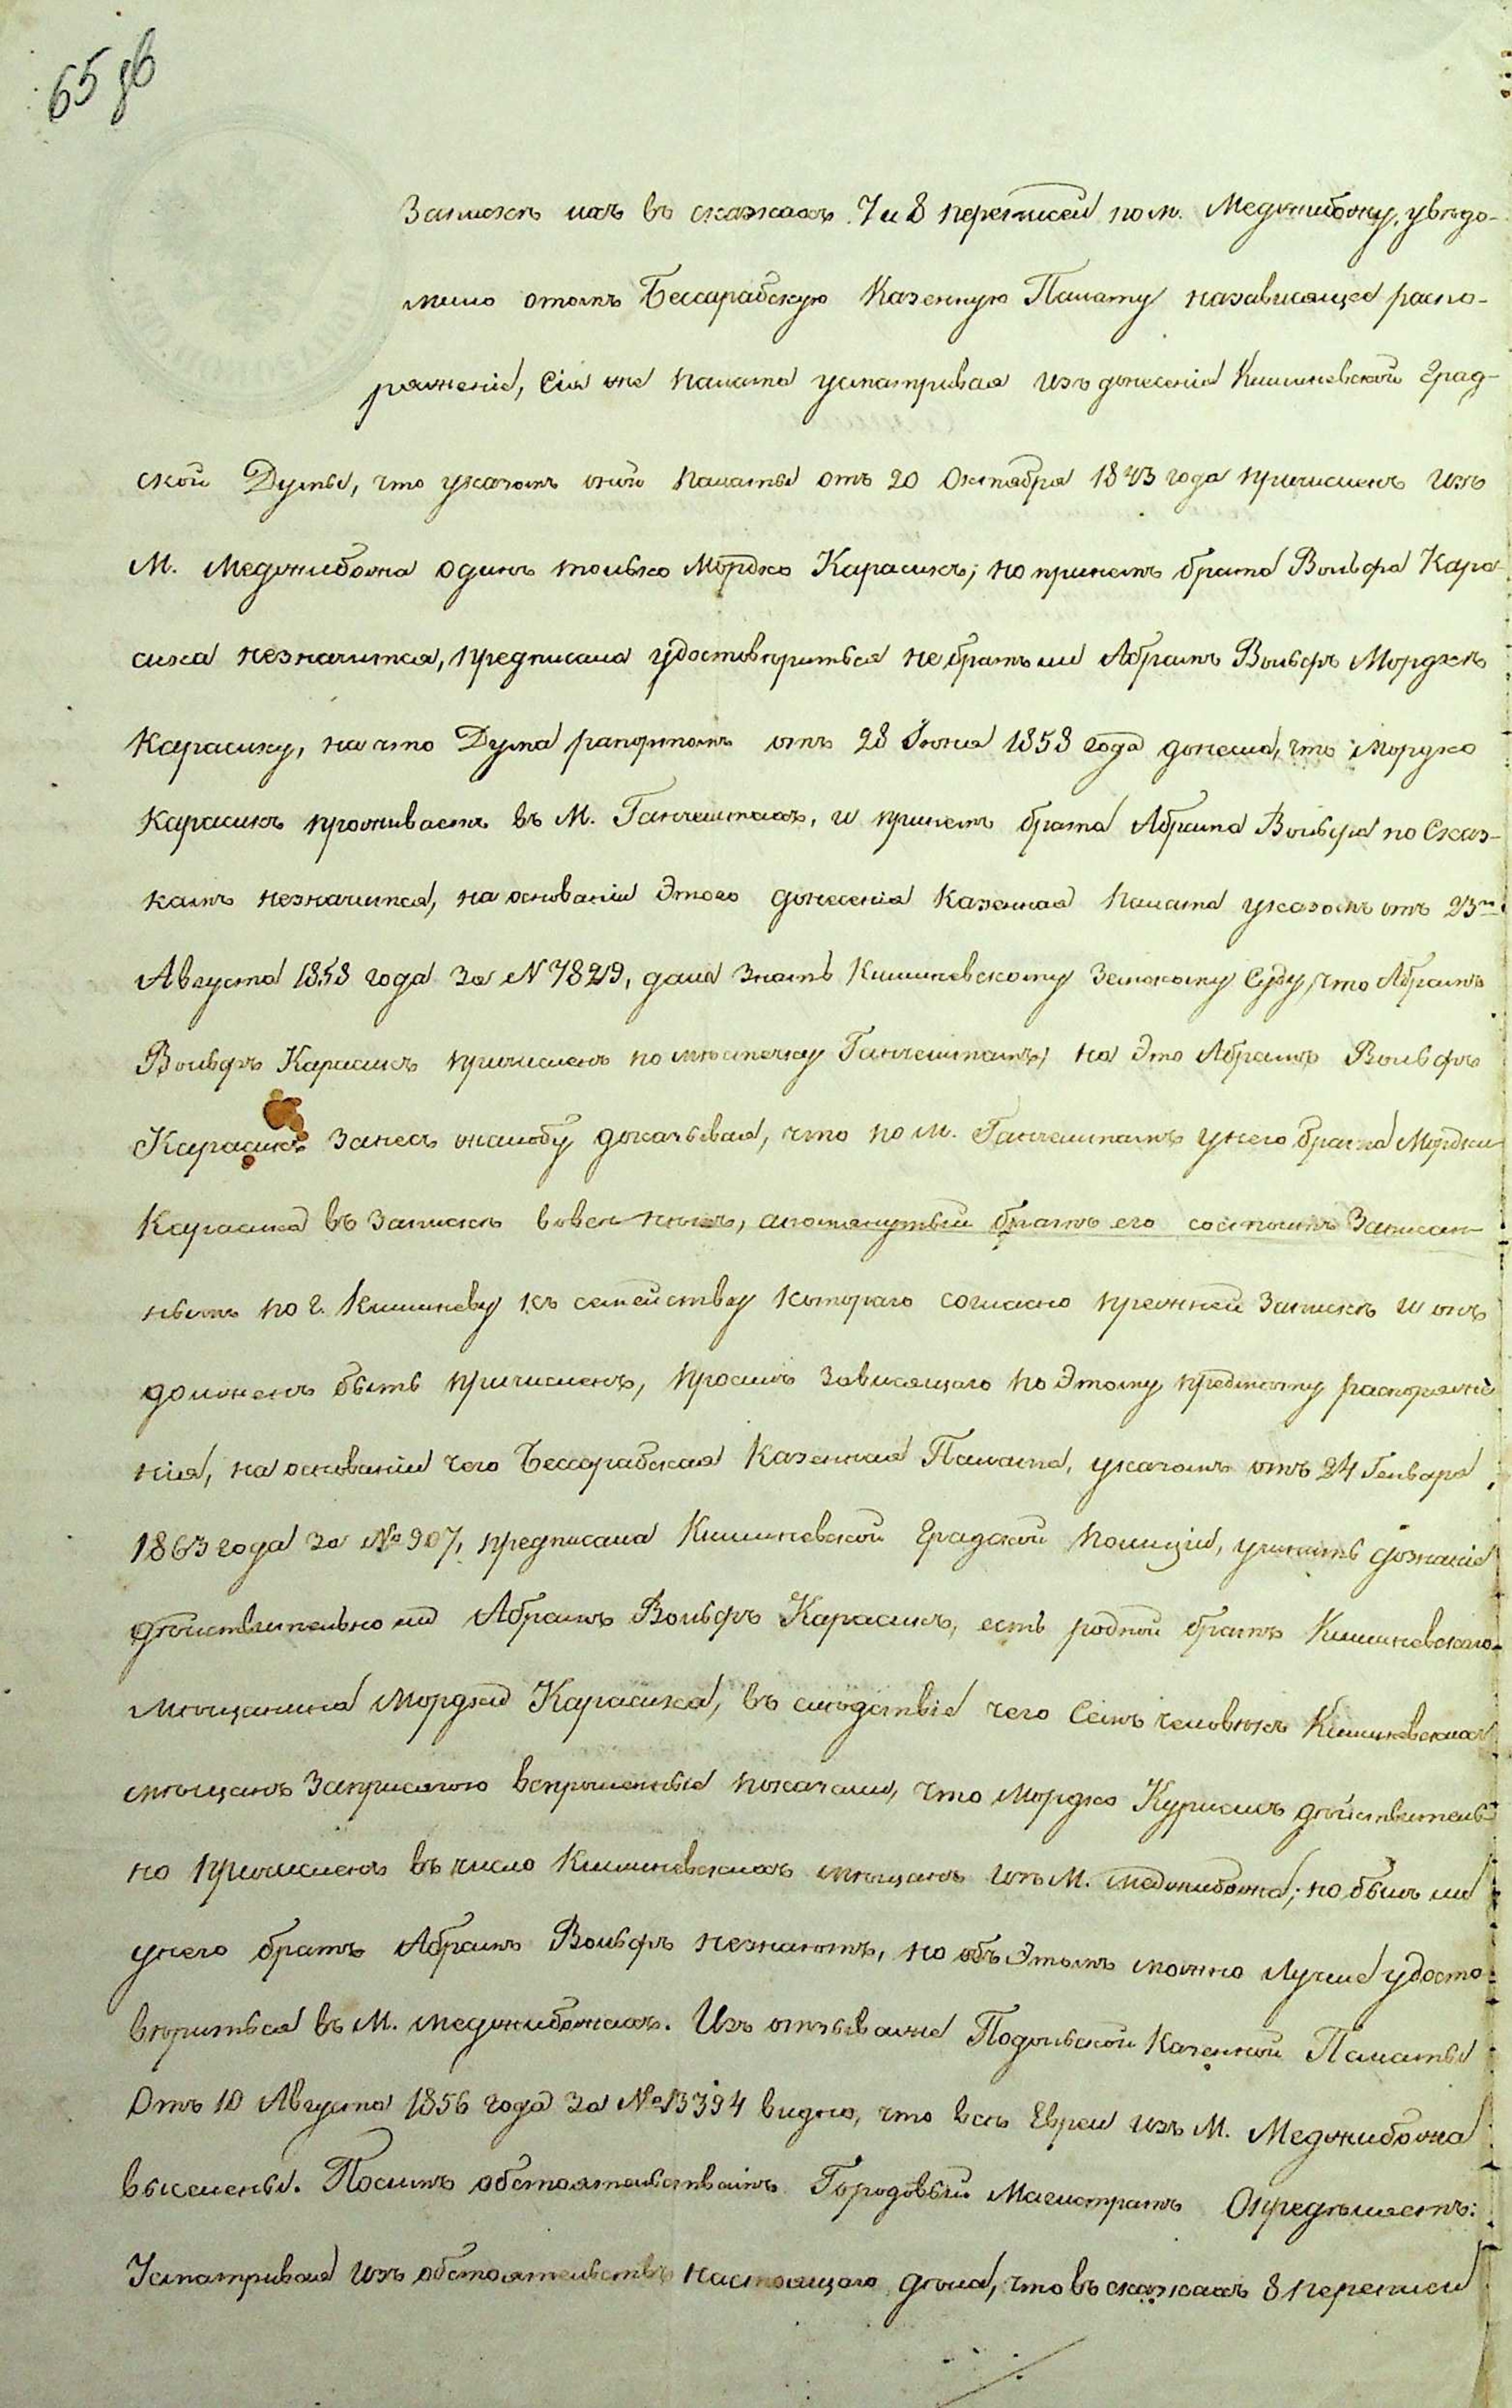 65 об
Запискѣ ихъ въ сказкахъ 7 и 8 переписей по м. Меджибожу, увѣдо-
мило отомъ Бессарабскую Казенную Палату назависящее распо-
ряженіе, Сія же палата усматривая изъ донесенія Кишиневской Град-
ской Думы, что указомъ оной палаты отъ 20 Октября 1843 года причисленъ изъ
М. Меджибожа одинъ только Мордко Карасикъ; но принемъ брата Вольфа Кара-
сика незначится, предписала удостовѣриться не братъ ли Абрамъ Вольфъ Мордкѣ
Карасику, на что Дума рапортомъ отъ 28 Іюня 1858 года донесла, что Мордко
Карасикъ проживаетъ въ М. Ганчештахъ, и принемъ брата Абрама Вольфа по Сказ-
камъ незначится, на основаніи Этого донесенія Казенная палата указомъ отъ 23го
Августа 1858 года За N 7829, дала знать Кишиневскому Земскому Суду, что Абрамъ
Вольфъ Карасикъ причисленъ по мѣстечку Ганчештамъ, на Это Абрамъ Вольфъ
Карасикъ Занесъ жалобу доказывая, что по м. Ганчештамъ у него брата Мордки
Карасика въ Запискѣ вовсе нѣтъ, а помянутый братъ его состоитъ Записан-
нымъ по г. Кишиневу къ семейству котораго согласно прежней Запискѣ и онъ
долженъ быть причисленъ, просилъ Зависящаго по Этому предмету распоряже-
нія, на основаніи чего Бессарабская Казенная Палата, указомъ отъ 24 Генваря
1863 года За № 907, предписала Кишиневской Градской полиціи, учинить дознаніе
дѣйствительно ли Абрамъ Вольфъ Карасикъ, есть родной братъ Кишиневскаго
Мѣщанина Мордки Карасика, въ слѣдствіе чего Семъ человѣкъ Кишиневскихъ
мѣщанъ Заприсягою вспрошенные показали, что Мордко Курасикъ дѣйствитель-
но причисленъ въ число Кишиневскихъ мѣщанъ изъ М. Меджибожа; но былъ ли
у него братъ Абрамъ Вольфъ незнаютъ, но объ Этомъ можно Лучше удосто-
вѣриться въ М. Меджибожахъ. Изъ Подольской Казенной Палаты
Отъ 10 Августа 1856 года За № 13394 видно, что всѣ Евреи изъ М. Меджибожа
выселены. Посимъ обстоятельствамъ Городовый Магистратъ Опредѣляетъ:
Усматривая изъ обстоятельствъ настоящаго дѣла, что въ сказкахъ 8 переписи